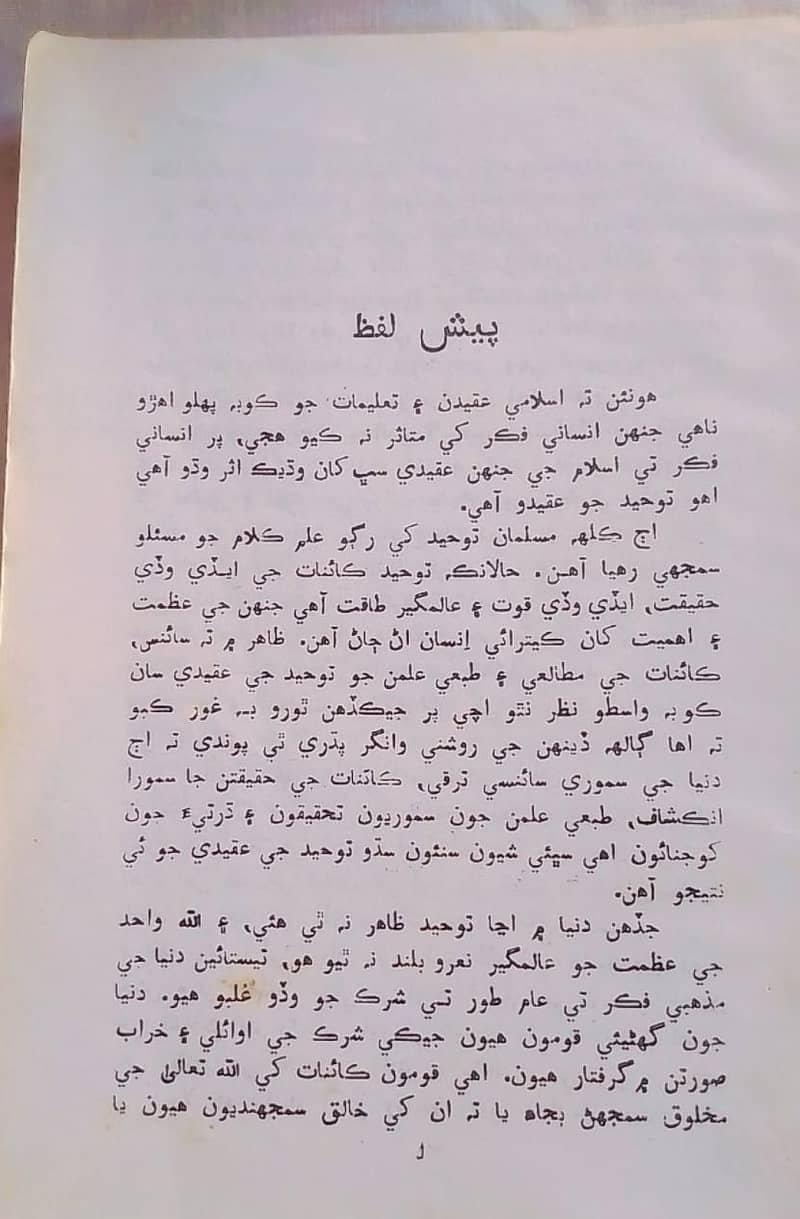 پيش لفظ
هونئن تہ اسلامي عقيدن ۽ تعليمات جو ڪوبہ پهلو اهڙو
ناهي جنهن انساني فڪر کي متاثر نہ ڪيو هجي، پر انساني
فڪر تي اسلام جي جنهن عقيدي سڀ کان وڌيڪ اثر وڌو آهي
اهو توحيد جو عقيدو آهي.
اڄ ڪلهہ مسلمان توحيد کي رڳو علم ڪلام جو مسئلو
سمجهي رهيا آهن. حالانڪہ توحيد ڪائنات جي ايڏي وڏي
حقيقت، ايڏي وڏي قوت ۽ عالمگير طاقت آهي جنهن جي عظمت
۽ اهميت کان ڪيترائي اِنسان اڻ ڄاڻ آهن. ظاهر ۾ تہ سائنس،
ڪائنات جي مطالعي ۽ طبعي علمن جو توحيد جي عقيدي سان
ڪوبہ واسطو نظر نٿو اچي پر جيڪڏهن ٿورو بہ غور ڪبو
تہ اها ڳالهہ ڏينهن جي روشني وانگر پڌري ٿي پوندي تہ اڄ
دنيا جي سموري سائنسي ترقي، ڪائنات جي حقيقتن جا سمورا
انڪشاف، طبعي علمن جون سموريون تحقيقون ۽ ڌرتيءَ جون
کوجنائون اهي سڀئي شيون سنئون سڌو توحيد جي عقيدي جو ئي
نتيجو آهن.
جڏهن دنيا ۾ اڃا توحيد ظاهر نہ ٿي هئي، ۽ الله واحد
جي عظمت جو عالمگير نعرو بلند نہ ٿيو هو، تيستائين دنيا جي
مذهبي فڪر تي عام طور تي شرڪ جو وڏو غلبو هيو. دنيا
جون گهڻيئي قومون هيون جيڪي شرڪ جي اوائلي ۽ خراب
صورتن ۾ گرفتار هيون. اهي قومون ڪائنات کي الله تعاليٰ جي
مخلوق سمجهڻ بجاءِ يا تہ ان کي خالق سمجهنديون هيون يا